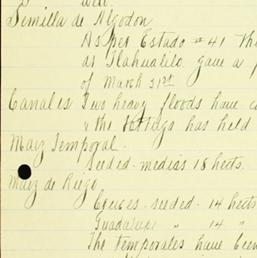 Well.
Semilla de Algodon
As per Estado #41 Th
as Tlahualilo gave a
of March 31st
Canales Two heavy floods have c
the Tortuga has held
Maiz Temporal.
Seeded - medias 18 hects.
Maiz de Riego
Cruces - seeded - 14 hects
Guadalupe " 14 "
The temporales have been